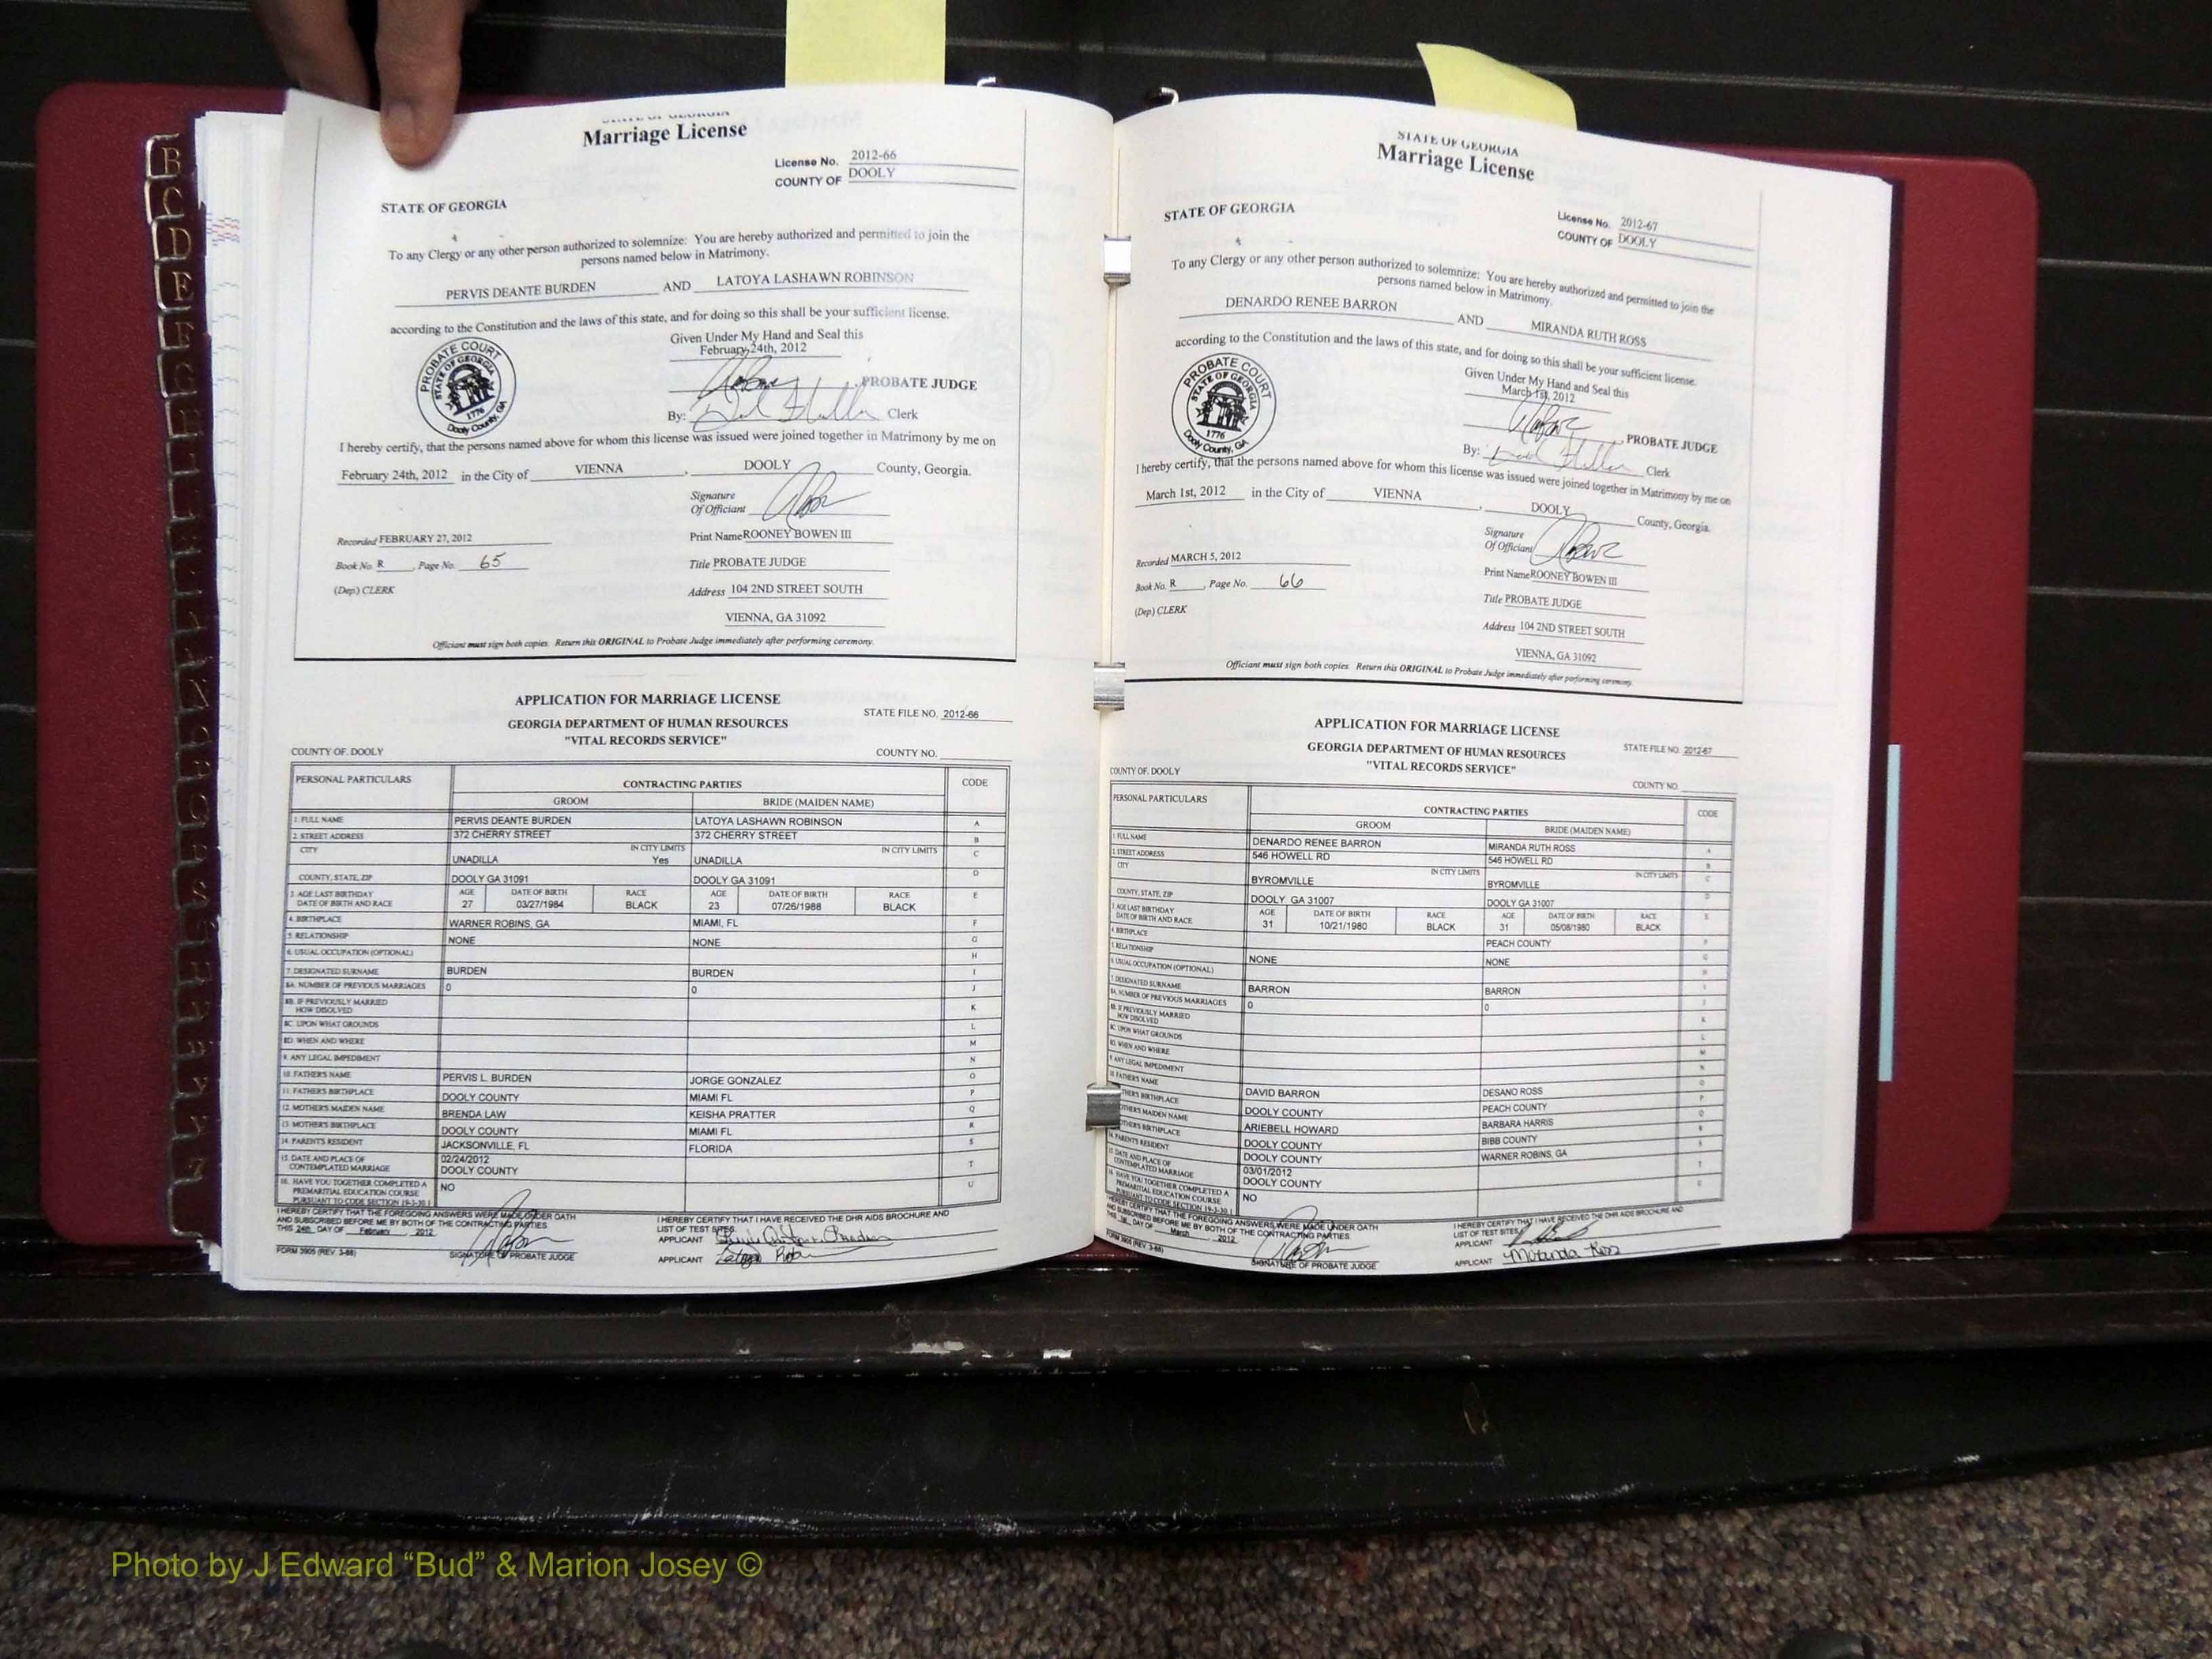 B
C
D
E
F
G
STATE OF GEORGIA
Marriage License
License No. 2012-66
COUNTY OF DOOLY
STATE OF GEORGIA
To any Clergy or any other person authorized to solemnize: You are hereby authorized and permitted to join the
persons named below in Matrimony.
PERVIS DEANTE BURDEN AND LATOYA LASHAWN ROBINSON
according to the Constitution and the laws of this state, and for doing so this shall be your sufficient license.
Given Under My Hand and Seal this
February 24th, 2012
PROBATE COURT
STATE OF GEORGIA
1776
Dooly County, GA
, PROBATE JUDGE
By: Clerk
I hereby certify, that the persons named above for whom this license was issued were joined together in Matrimony by me on
February 24th, 2012 in the City of VIENNA , DOOLY County, Georgia.
Signature
Of Officiant
Recorded FEBRUARY 27, 2012
Print Name ROONEY BOWEN III
Book No. R , Page No. 65
Title PROBATE JUDGE
(Dep.) CLERK
Address 104 2ND STREET SOUTH
VIENNA, GA 31092
Officiant must sign both copies. Return this ORIGINAL to Probate Judge immediately after performing ceremony.
APPLICATION FOR MARRIAGE LICENSE
GEORGIA DEPARTMENT OF HUMAN RESOURCES
"VITAL RECORDS SERVICE"
STATE FILE NO. 2012-66
COUNTY OF. DOOLY
COUNTY NO.
PERSONAL PARTICULARS CONTRACTING PARTIES CODE
GROOM BRIDE (MAIDEN NAME)
1. FULL NAME PERVIS DEANTE BURDEN LATOYA LASHAWN ROBINSON A
2. STREET ADDRESS 372 CHERRY STREET 372 CHERRY STREET B
CITY IN CITY LIMITS IN CITY LIMITS C
UNADILLA Yes UNADILLA
COUNTY, STATE, ZIP DOOLY GA 31091 DOOLY GA 31091 D
3. AGE LAST BIRTHDAY AGE DATE OF BIRTH RACE AGE DATE OF BIRTH RACE E
DATE OF BIRTH AND RACE 27 03/27/1984 BLACK 23 07/26/1988 BLACK
4. BIRTHPLACE WARNER ROBINS, GA MIAMI, FL F
5. RELATIONSHIP NONE NONE G
6. USUAL OCCUPATION (OPTIONAL) H
7. DESIGNATED SURNAME BURDEN BURDEN I
8A. NUMBER OF PREVIOUS MARRIAGES 0 0 J
8B. IF PREVIOUSLY MARRIED
HOW DISOLVED K
8C. UPON WHAT GROUNDS L
8D. WHEN AND WHERE M
9. ANY LEGAL IMPEDIMENT N
10. FATHER'S NAME PERVIS L. BURDEN JORGE GONZALEZ O
11. FATHER'S BIRTHPLACE DOOLY COUNTY MIAMI FL P
12. MOTHER'S MAIDEN NAME BRENDA LAW KEISHA PRATTER Q
13. MOTHER'S BIRTHPLACE DOOLY COUNTY MIAMI FL R
14. PARENTS RESIDENT JACKSONVILLE, FL FLORIDA S
15. DATE AND PLACE OF 02/24/2012 T
CONTEMPLATED MARRIAGE DOOLY COUNTY
16. HAVE YOU TOGETHER COMPLETED A NO U
PREMARITIAL EDUCATION COURSE
PURSUANT TO CODE SECTION 19-3-30.1
I HEREBY CERTIFY THAT THE FOREGOING ANSWERS WERE MADE UNDER OATH
AND SUBSCRIBED BEFORE ME BY BOTH OF THE CONTRACTING PARTIES
THIS 24th DAY OF February , 2012
I HEREBY CERTIFY THAT I HAVE RECEIVED THE DHR AIDS BROCHURE AND
LIST OF TEST SITES.
APPLICANT
FORM 3905 (REV. 3-88) SIGNATURE OF PROBATE JUDGE APPLICANT
STATE OF GEORGIA
Marriage License
License No. 2012-67
COUNTY OF DOOLY
STATE OF GEORGIA
To any Clergy or any other person authorized to solemnize: You are hereby authorized and permitted to join the
persons named below in Matrimony.
DENARDO RENEE BARRON AND MIRANDA RUTH ROSS
according to the Constitution and the laws of this state, and for doing so this shall be your sufficient license.
Given Under My Hand and Seal this
March 1st, 2012
PROBATE COURT
STATE OF GEORGIA
1776
Dooly County, GA
, PROBATE JUDGE
By: Clerk
I hereby certify, that the persons named above for whom this license was issued were joined together in Matrimony by me on
March 1st, 2012 in the City of VIENNA , DOOLY County, Georgia.
Signature
Of Officiant
Recorded MARCH 5, 2012
Print Name ROONEY BOWEN III
Book No. R , Page No. 66
Title PROBATE JUDGE
(Dep.) CLERK
Address 104 2ND STREET SOUTH
VIENNA, GA 31092
Officiant must sign both copies. Return this ORIGINAL to Probate Judge immediately after performing ceremony.
APPLICATION FOR MARRIAGE LICENSE
GEORGIA DEPARTMENT OF HUMAN RESOURCES
"VITAL RECORDS SERVICE"
STATE FILE NO. 2012-67
COUNTY OF. DOOLY
COUNTY NO.
PERSONAL PARTICULARS CONTRACTING PARTIES CODE
GROOM BRIDE (MAIDEN NAME)
1. FULL NAME DENARDO RENEE BARRON MIRANDA RUTH ROSS A
2. STREET ADDRESS 546 HOWELL RD 546 HOWELL RD B
CITY IN CITY LIMITS IN CITY LIMITS C
BYROMVILLE BYROMVILLE
COUNTY, STATE, ZIP DOOLY GA 31007 DOOLY GA 31007 D
3. AGE LAST BIRTHDAY AGE DATE OF BIRTH RACE AGE DATE OF BIRTH RACE E
DATE OF BIRTH AND RACE 31 10/21/1980 BLACK 31 05/08/1980 BLACK
4. BIRTHPLACE PEACH COUNTY F
5. RELATIONSHIP NONE NONE G
6. USUAL OCCUPATION (OPTIONAL) H
7. DESIGNATED SURNAME BARRON BARRON I
8A. NUMBER OF PREVIOUS MARRIAGES 0 0 J
8B. IF PREVIOUSLY MARRIED
HOW DISOLVED K
8C. UPON WHAT GROUNDS L
8D. WHEN AND WHERE M
9. ANY LEGAL IMPEDIMENT N
10. FATHER'S NAME DAVID BARRON DESANO ROSS O
THER'S BIRTHPLACE DOOLY COUNTY PEACH COUNTY P
OTHER'S MAIDEN NAME ARIEBELL HOWARD BARBARA HARRIS Q
OTHER'S BIRTHPLACE DOOLY COUNTY BIBB COUNTY R
14. PARENTS RESIDENT DOOLY COUNTY WARNER ROBINS, GA S
15. DATE AND PLACE OF 03/01/2012 T
CONTEMPLATED MARRIAGE DOOLY COUNTY
16. HAVE YOU TOGETHER COMPLETED A NO U
PREMARITIAL EDUCATION COURSE
PURSUANT TO CODE SECTION 19-3-30.1
I HEREBY CERTIFY THAT THE FOREGOING ANSWERS WERE MADE UNDER OATH
AND SUBSCRIBED BEFORE ME BY BOTH OF THE CONTRACTING PARTIES
THIS 1st DAY OF March , 2012
I HEREBY CERTIFY THAT I HAVE RECEIVED THE DHR AIDS BROCHURE AND
LIST OF TEST SITES.
APPLICANT
FORM 3905 (REV. 3-88) SIGNATURE OF PROBATE JUDGE APPLICANT Miranda Ross
Photo by J Edward “Bud” & Marion Josey ©